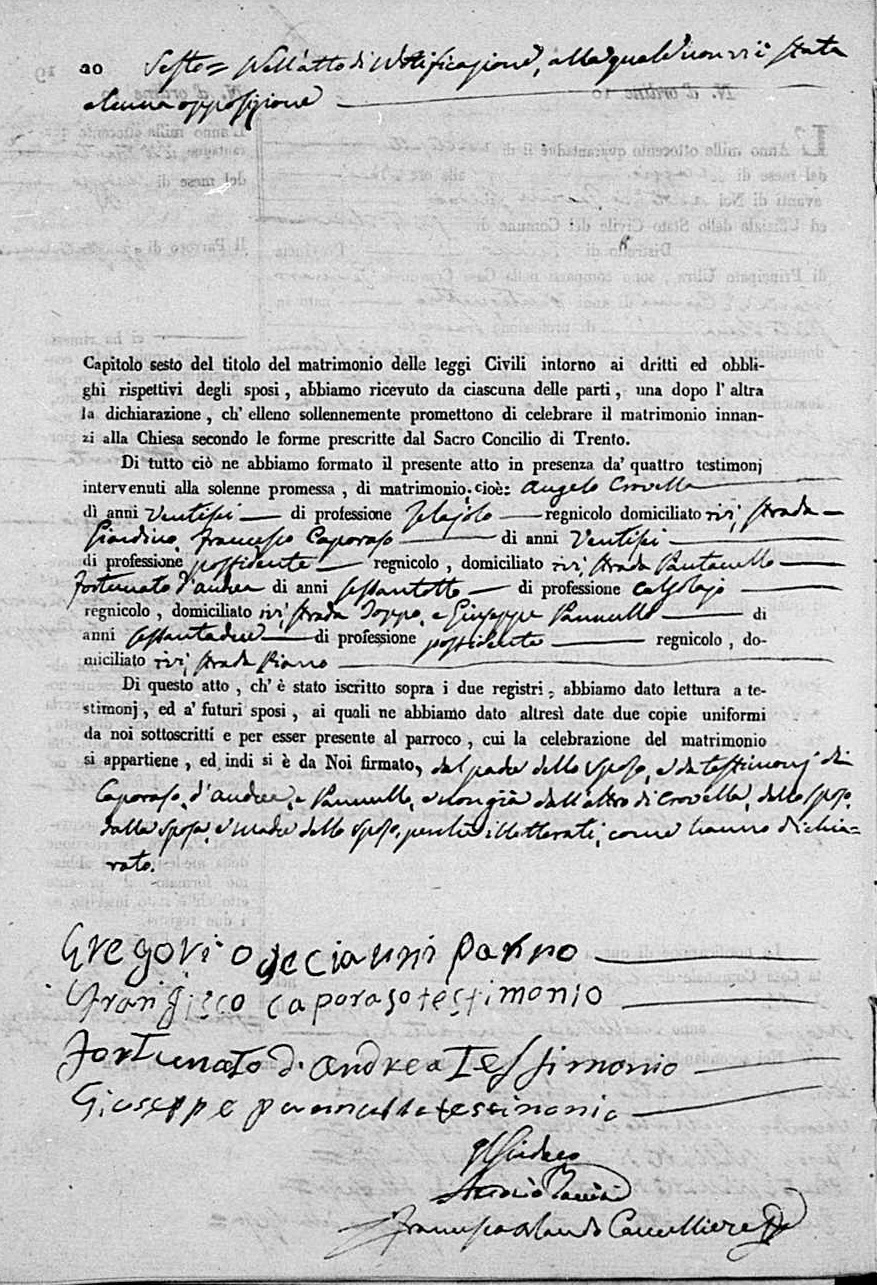 20 Sesto= Nell'atto di Notificazione, alla quale non vi è stata
alcuna opposizione
Capitolo sesto del titolo del matrimonio delle leggi Civili intorno ai dritti ed obbli-
ghi rispettivi degli sposi, abbiamo ricevuto da ciascuna delle parti, una dopo l'altra
la dichiarazione, ch' elleno sollennemente promettono di celebrare il matrimonio innan-
zi alla Chiesa secondo le forme prescritte dal Sacro Concilio di Trento.
Di tutto ciò ne abbiamo formato il presente atto in presenza da' quattro testimonj
intervenuti alla solenne promessa, di matrimonio; cioè: Angelo Crovella
di anni Ventisei di professione regnicolo domiciliato ivi, strada
Giardino, Francesco Caporaso di anni Ventisei
di professione possidente regnicolo, domiciliato ivi, strada Pantanello
Fortunato d'andrea di anni sessantotto di professione calzolajo
regnicolo, domiciliato ivi, strada Toppo, e Giuseppe Pannullo di
anni sessantadue di professione possidente regnicolo, do-
miciliato ivi, strada Piano
Di questo atto, ch' è stato iscritto sopra i due registri, abbiamo dato lettura a te-
stimonj, ed a' futuri sposi, ai quali ne abbiamo dato altresì date due copie uniformi
da noi sottoscritti e per esser presente al parroco, cui la celebrazione del matrimonio
si appartiene, ed indi si è da Noi firmato, dal padre dello sposo, e da testimonj di
Caporaso, d'andrea, e Pannullo, e non già dall'altro di Crovella, dello sposo,
dalla sposa, e madre dello sposo, perché illetterati, come hanno dichia=
rato.
Gregorio
franGisco caporaso testimonio
fortunato d. andrea Tessimonio
Giuseppe pannullo testimonio
Il Sindaco
Francesco Orlando Cancelliere